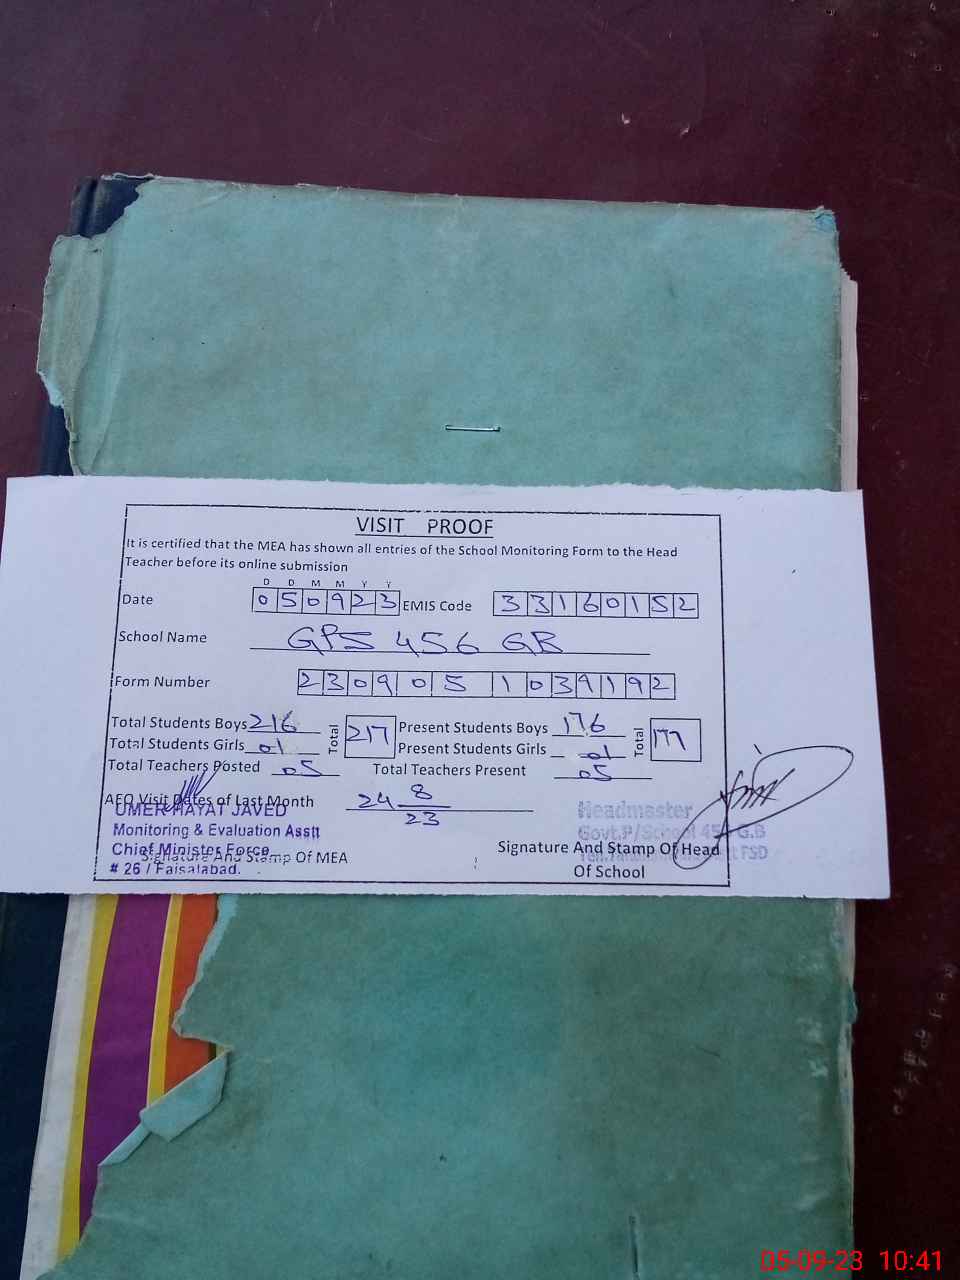 VISIT PROOF
It is certified that the MEA has shown all entries of the School Monitoring Form to the Head
Teacher before its online submission
D D M M Y Y
Date 050923 EMIS Code 33160152
School Name GPS 456 GB
Form Number 230905 1039192
Total Students Boys 216 Total 217 Present Students Boys 176 Total 177
Total Students Girls 01 Present Students Girls 01
Total Teachers Posted 05 Total Teachers Present 05
AEO Visit Dates of Last Month 24 8 23
UMER HAYAT JAVED
Monitoring & Evaluation Asstt
Chief Minister Force
# 26 / Faisalabad.
Signature And Stamp Of MEA
Headmaster
Govt.P/School 456 G.B
FSD
Signature And Stamp Of Head
Of School
05-09-23 10:41